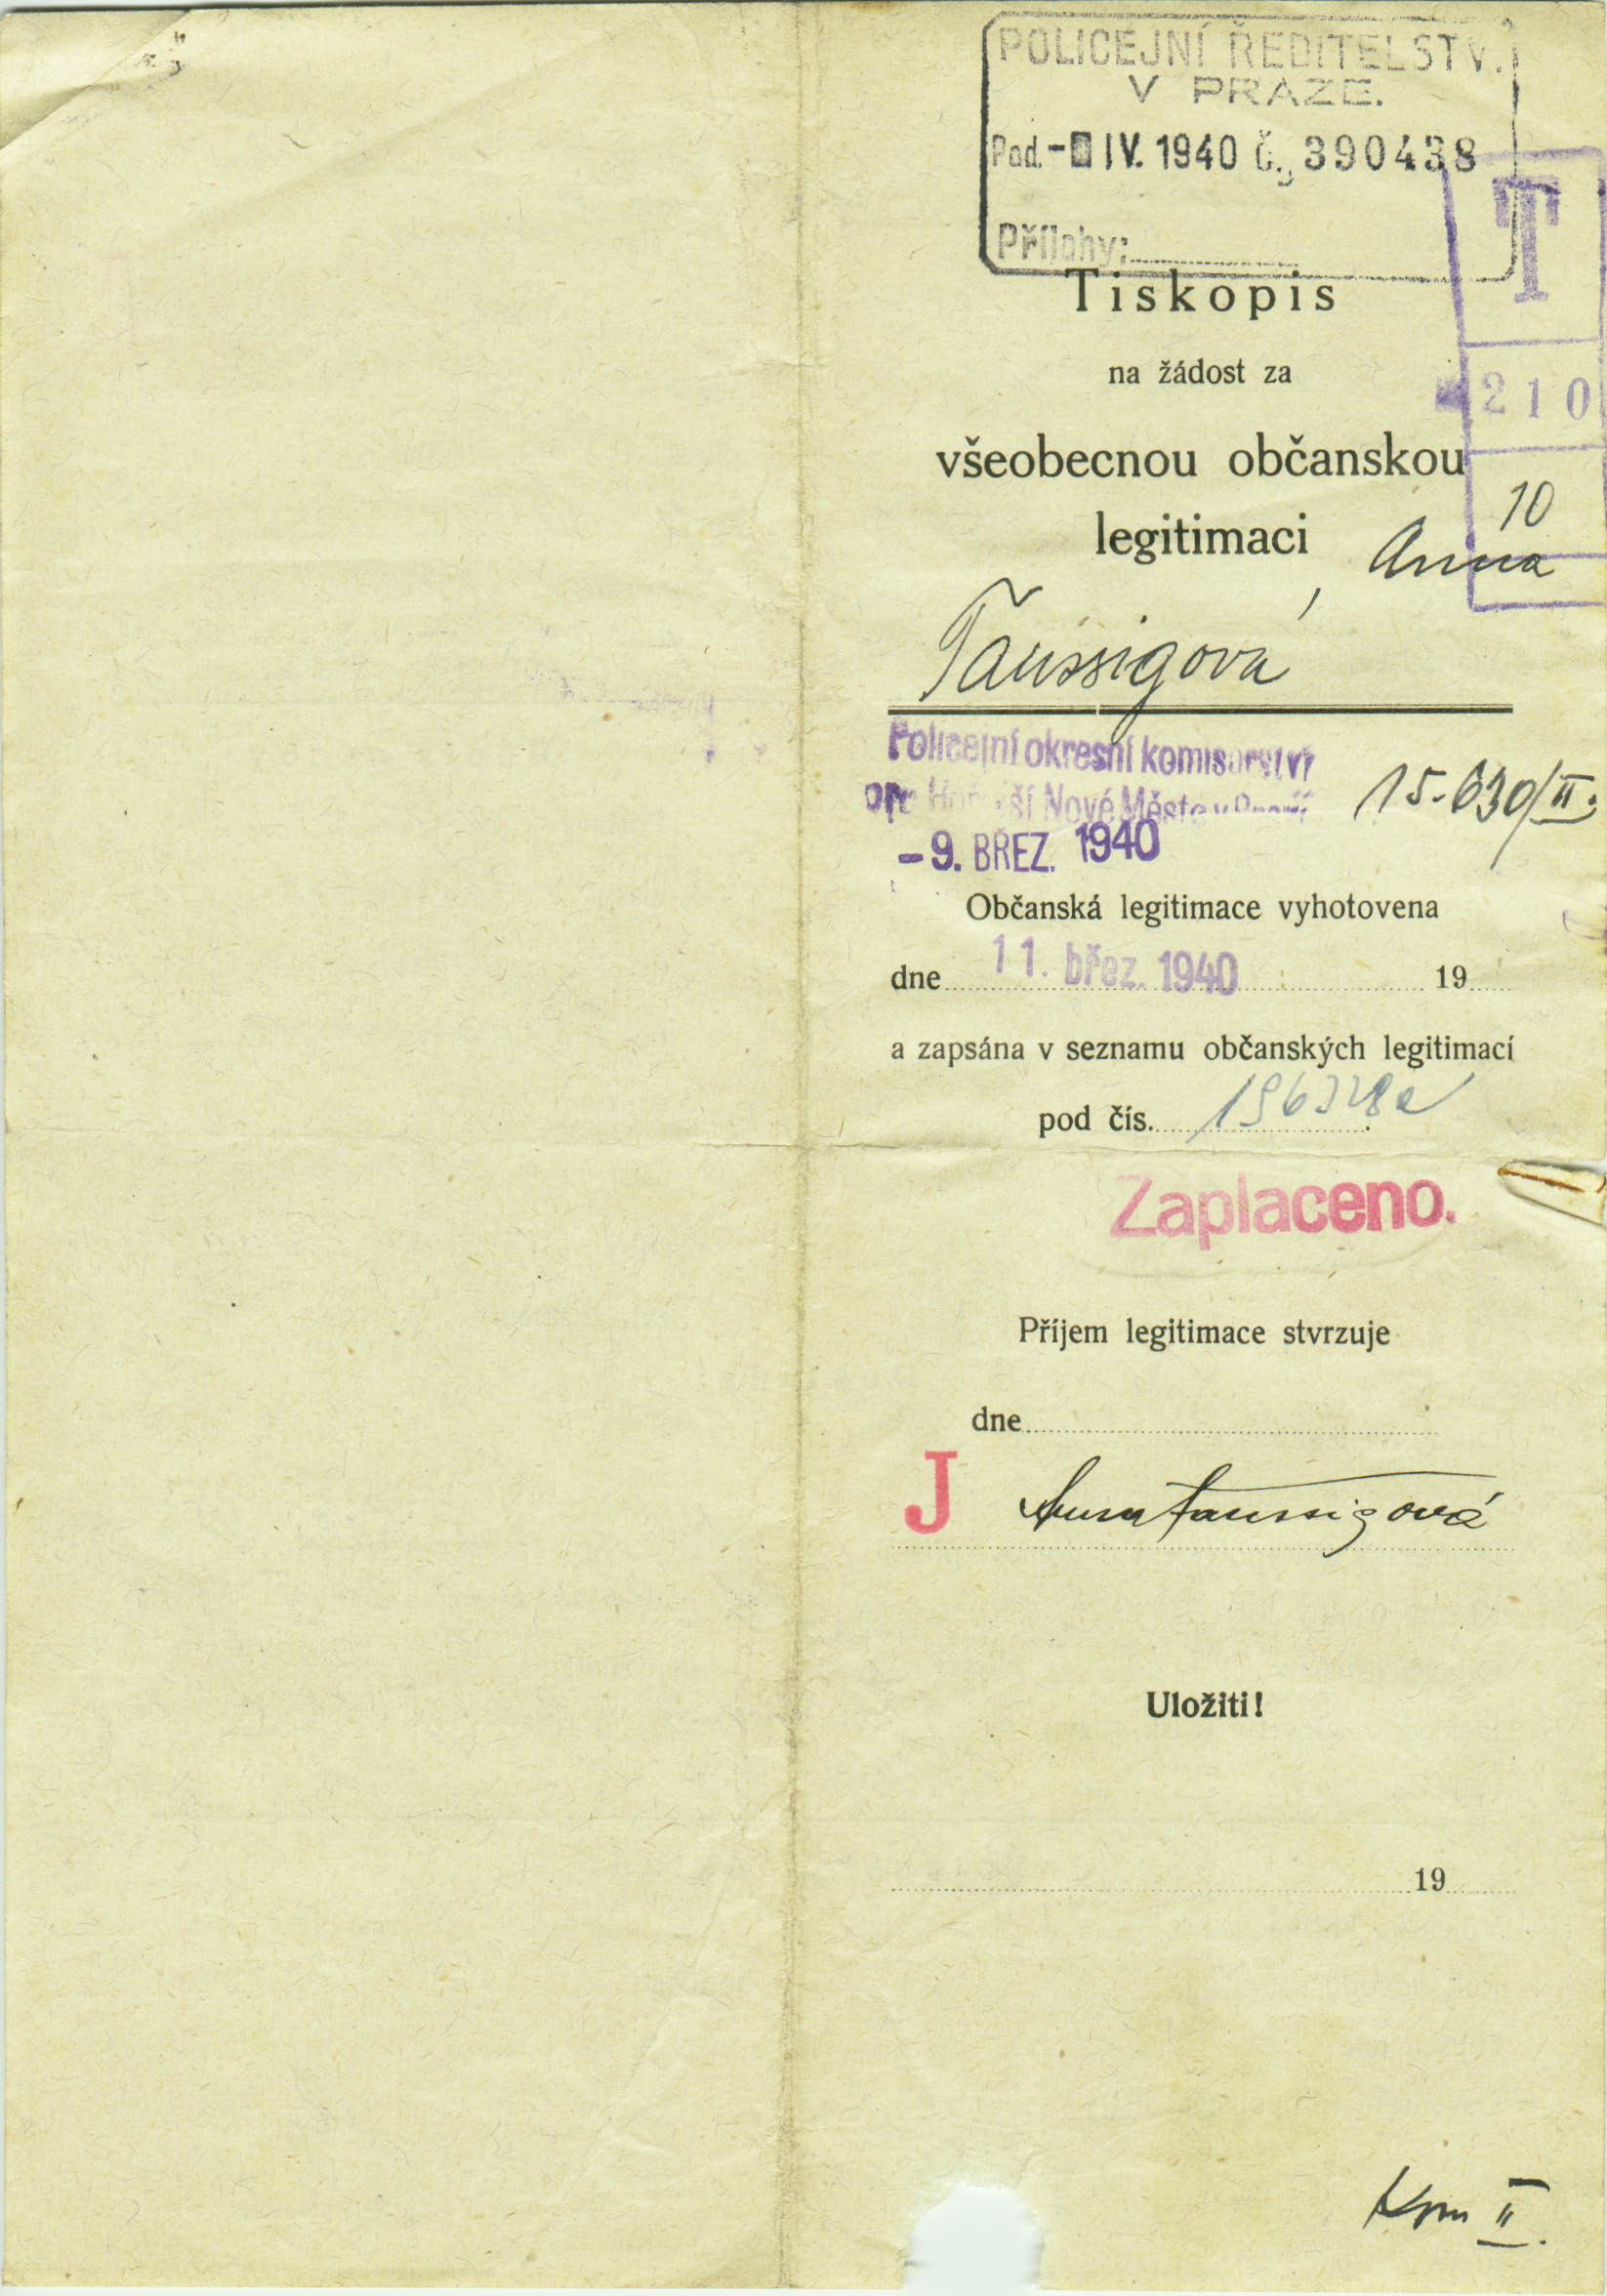 POLICEJNÍ ŘEDITELSTV.
V PRAZE.
Pod. - IV. 1940 č. 390438
Přílohy:
T
Tiskopis
na žádost za
210
všeobecnou občanskou
10
legitimaci Anna
Taussigová
Policejní okresní komisařství
pro Nové Město v
15-630/II.
- 9. BŘEZ. 1940
Občanská legitimace vyhotovena
dne 11. břez. 1940 19
a zapsána v seznamu občanských legitimací
pod čís.
Zaplaceno.
Příjem legitimace stvrzuje
dne
J Anna Taussigová
Uložiti!
19
Kom II.